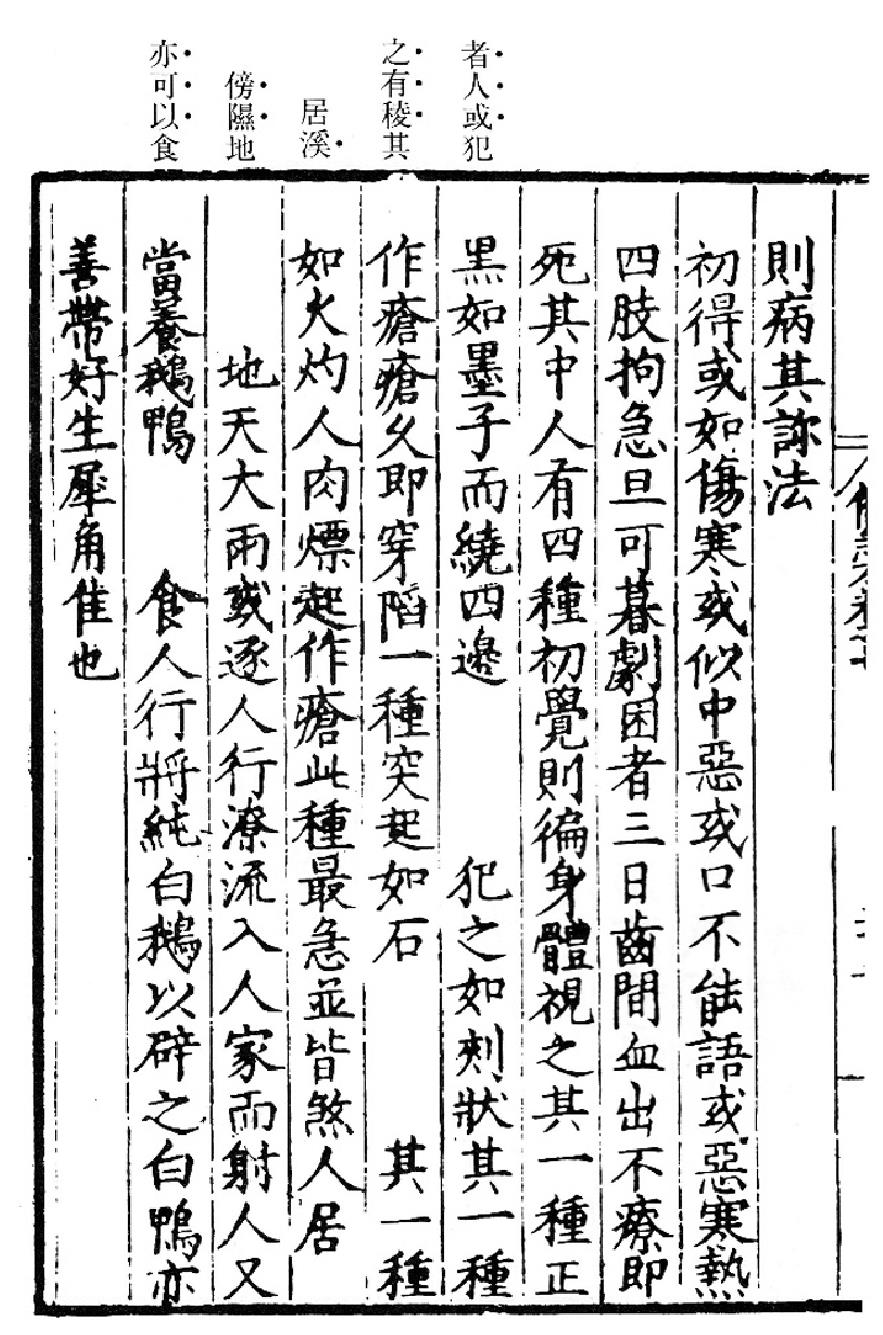 則病其診法
初得或如傷寒或似中惡或口不能語或惡寒熱
四肢拘急旦可暮劇困者三日齒間血出不療即
死其中人有四種初覺則徧身體視之其一種正
者人或犯
黑如墨子而繞四邊 犯之如刺狀其一種
之有稜其
作瘡瘡久即穿陷一種突起如石 其一種
居溪
如火灼人肉熛起作瘡此種最急並皆煞人居
傍隰地
地天大雨或逐人行潦流入人家而射人又
亦可以食
當養鵝鴨 食人行將純白鵝以辟之白鴨亦
善帶好生犀角佳也